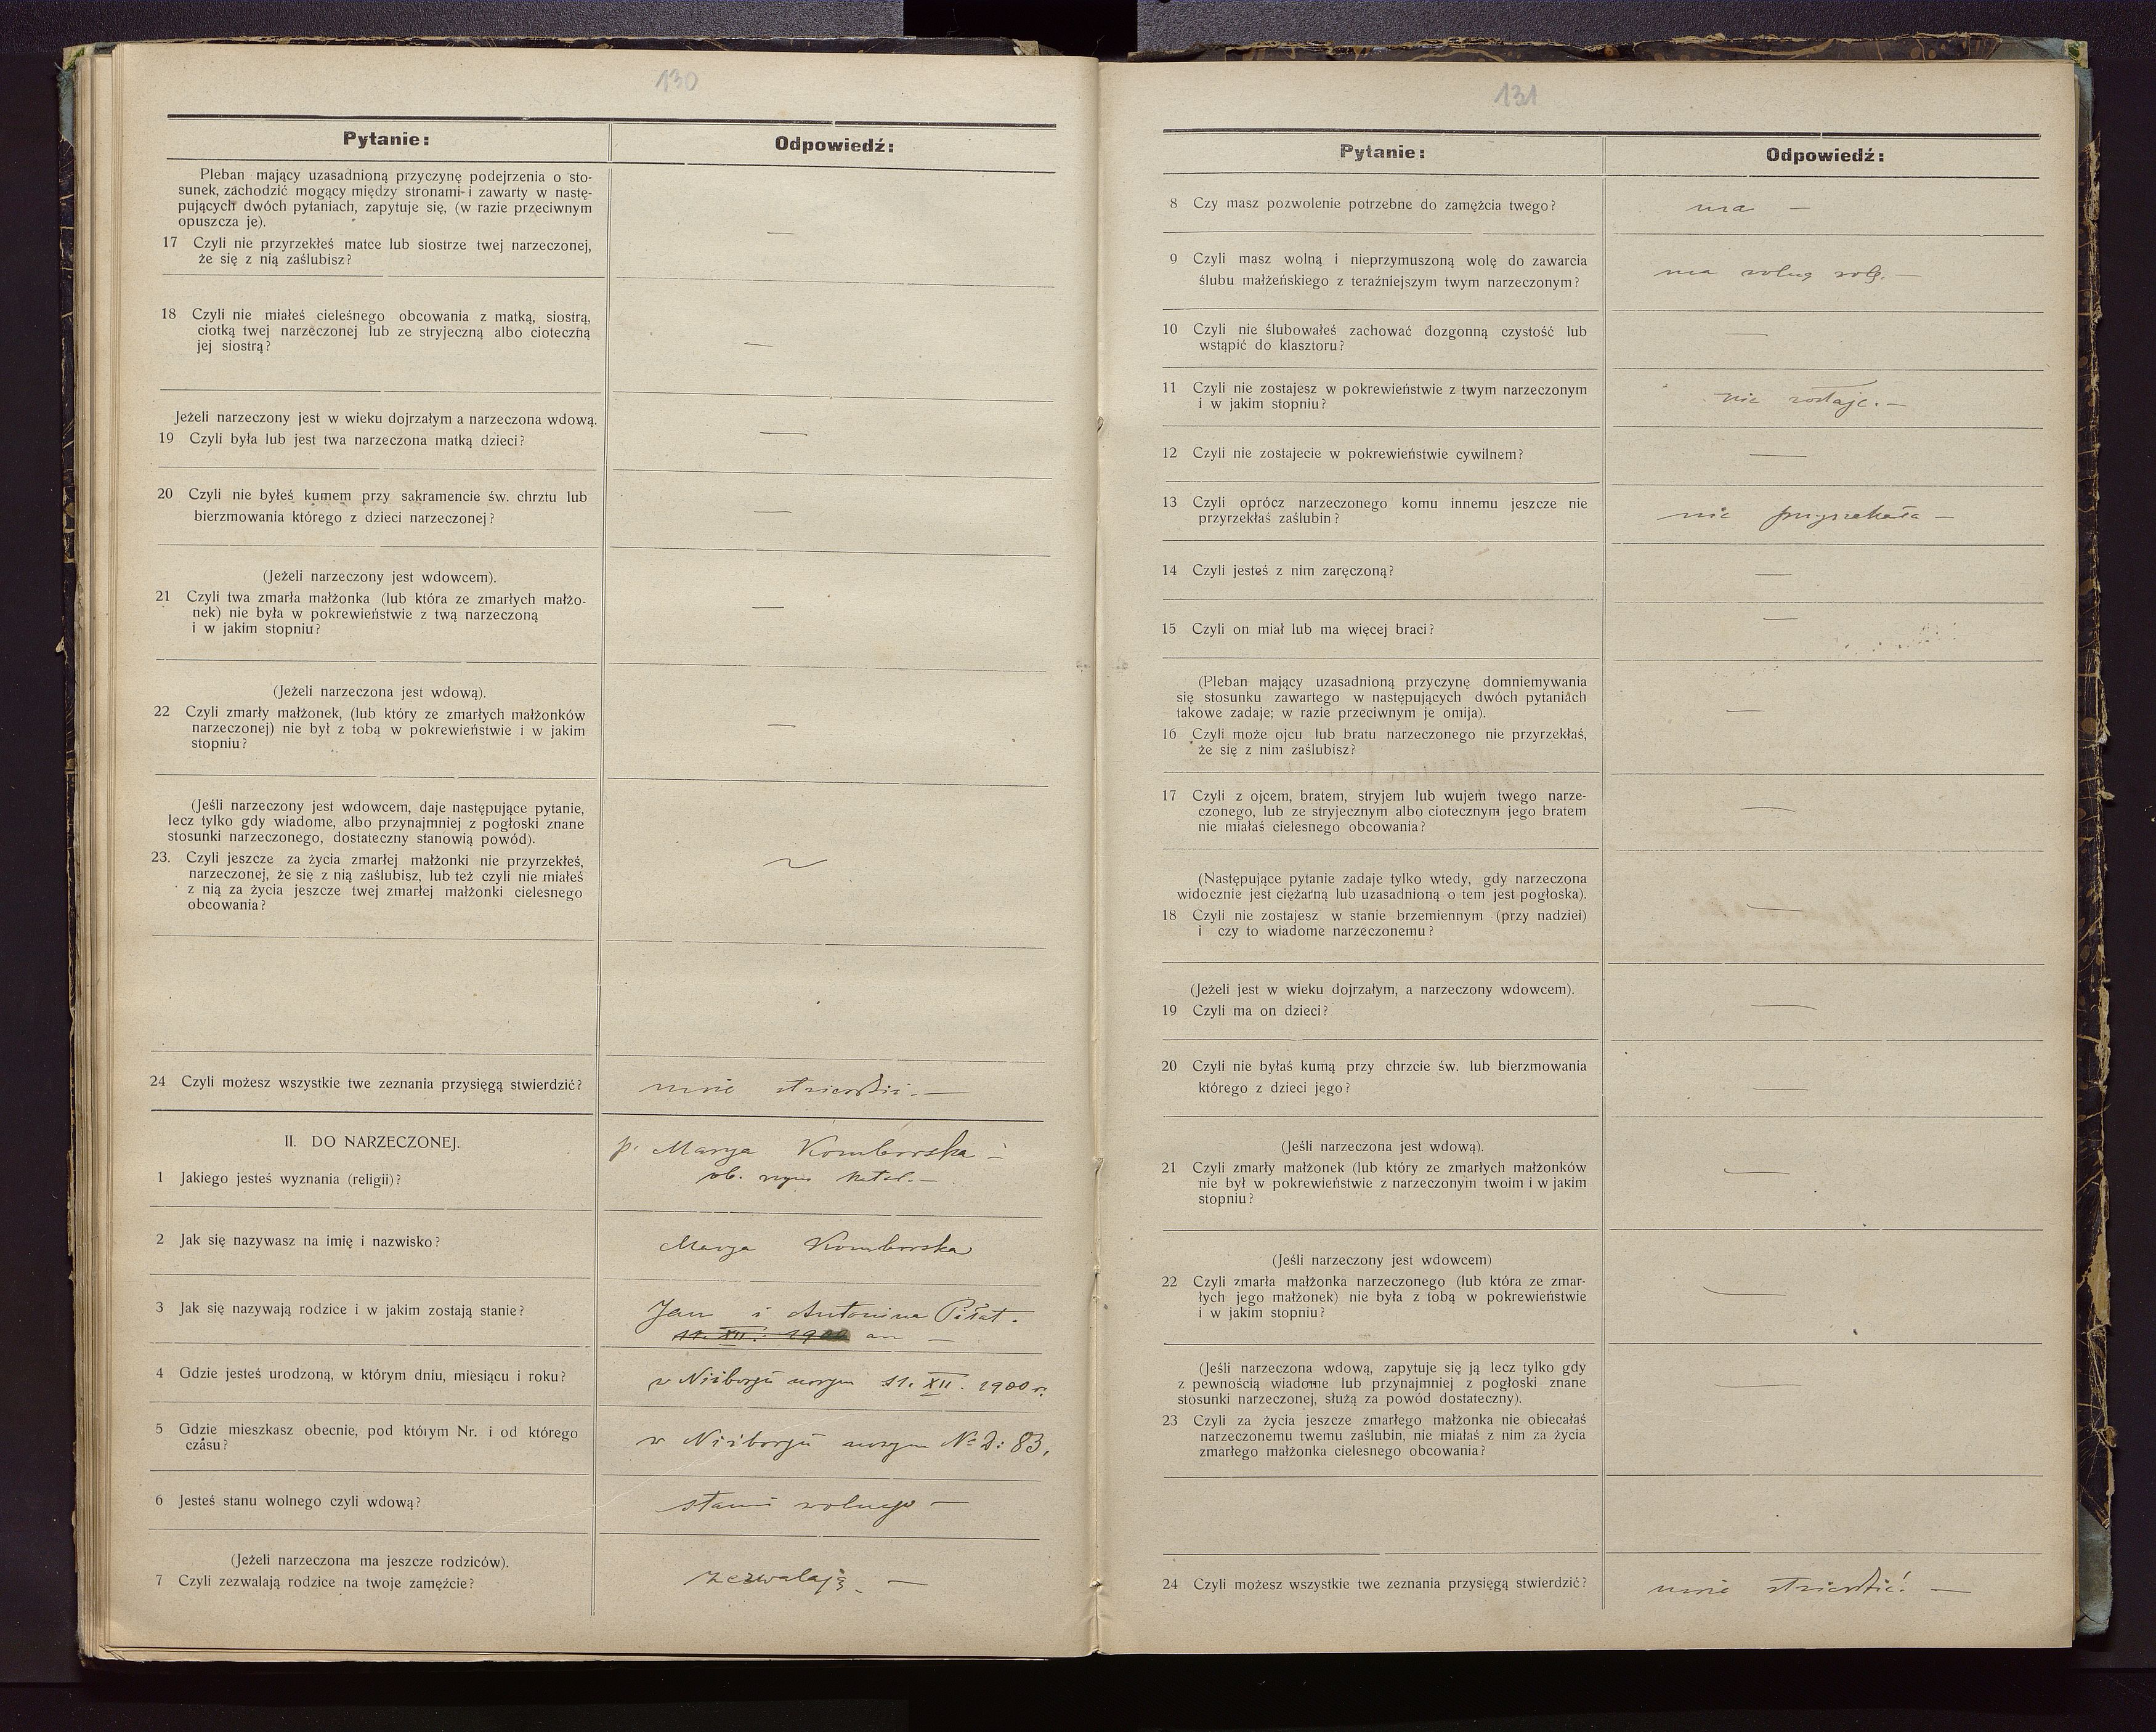 130
Pytanie:
Odpowiedź:
Pleban mający uzasadnioną przyczynę podejrzenia o sto-
sunek, zachodzić mogący między stronami i zawarty w nastę-
pujących dwóch pytaniach, zapytuje się, (w razie przeciwnym
opuszcza je).
17 Czyli nie przyrzekłeś matce lub siostrze twej narzeczonej,
że się z nią zaślubisz?
—
18 Czyli nie miałeś cieleśnego obcowania z matką, siostrą,
ciotką twej narzeczonej lub ze stryjeczną albo cioteczną
jej siostrą?
—
Jeżeli narzeczony jest w wieku dojrzałym a narzeczona wdową.
19 Czyli była lub jest twa narzeczona matką dzieci?
—
20 Czyli nie byłeś kumem przy sakramencie św. chrztu lub
bierzmowania którego z dzieci narzeczonej?
—
(Jeżeli narzeczony jest wdowcem).
21 Czyli twa zmarła małżonka (lub która ze zmarłych małżo-
nek) nie była w pokrewieństwie z twą narzeczoną
i w jakim stopniu?
—
(Jeżeli narzeczona jest wdową).
22 Czyli zmarły małżonek, (lub który ze zmarłych małżonków
narzeczonej) nie był z tobą w pokrewieństwie i w jakim
stopniu?
—
(Jeśli narzeczony jest wdowcem, daje następujące pytanie,
lecz tylko gdy wiadome, albo przynajmniej z pogłoski znane
stosunki narzeczonego, dostateczny stanowią powód).
23. Czyli jeszcze za życia zmarłej małżonki nie przyrzekłeś,
narzeczonej, że się z nią zaślubisz, lub też czyli nie miałeś
z nią za życia jeszcze twej zmarłej małżonki cielesnego
obcowania?
—
24 Czyli możesz wszystkie twe zeznania przysięgą stwierdzić?
może stwierdzić. —
II. DO NARZECZONEJ.
p. Marya Komborska —
1 Jakiego jesteś wyznania (religii)?
ob. rzym. katol. —
2 Jak się nazywasz na imię i nazwisko?
Marya Komborska
3 Jak się nazywają rodzice i w jakim zostają stanie?
Jan i Antonina Piłat.
11. XII. 1900 —
4 Gdzie jesteś urodzoną, w którym dniu, miesiącu i roku?
w Niżborgu nowym 11. XII. 1900 r.
5 Gdzie mieszkasz obecnie, pod którym Nr. i od którego
czasu?
w Niżborgu nowym No D: 83.
6 Jesteś stanu wolnego czyli wdową?
stanu wolnego —
(Jeżeli narzeczona ma jeszcze rodziców).
7 Czyli zezwalają rodzice na twoje zamęźcie?
zezwalają. —
131
Pytanie:
Odpowiedź:
8 Czy masz pozwolenie potrzebne do zamęźcia twego?
ma —
9 Czyli masz wolną i nieprzymuszoną wolę do zawarcia
ślubu małżeńskiego z teraźniejszym twym narzeczonym?
ma wolną wolę. —
10 Czyli nie ślubowałeś zachować dozgonną czystość lub
wstąpić do klasztoru?
—
11 Czyli nie zostajesz w pokrewieństwie z twym narzeczonym
i w jakim stopniu?
nie zostaje. —
12 Czyli nie zostajecie w pokrewieństwie cywilnem?
—
13 Czyli oprócz narzeczonego komu innemu jeszcze nie
przyrzekłaś zaślubin?
nie przyrzekała —
14 Czyli jesteś z nim zaręczoną?
—
15 Czyli on miał lub ma więcej braci?
—
(Pleban mający uzasadnioną przyczynę domniemywania
się stosunku zawartego w następujących dwóch pytaniach
takowe zadaje; w razie przeciwnym je omija).
16 Czyli może ojcu lub bratu narzeczonego nie przyrzekłaś,
że się z nim zaślubisz?
—
17 Czyli z ojcem, bratem, stryjem lub wujem twego narze-
czonego, lub ze stryjecznym albo ciotecznym jego bratem
nie miałaś cielesnego obcowania?
—
(Następujące pytanie zadaje tylko wtedy, gdy narzeczona
widocznie jest ciężarną lub uzasadnioną o tem jest pogłoska).
18 Czyli nie zostajesz w stanie brzemiennym (przy nadziei)
i czy to wiadome narzeczonemu?
—
(Jeżeli jest w wieku dojrzałym, a narzeczony wdowcem).
19 Czyli ma on dzieci?
—
20 Czyli nie byłaś kumą przy chrzcie św. lub bierzmowania
którego z dzieci jego?
—
(Jeśli narzeczona jest wdową).
21 Czyli zmarły małżonek (lub który ze zmarłych małżonków
nie był w pokrewieństwie z narzeczonym twoim i w jakim
stopniu?
—
(Jeśli narzeczony jest wdowcem)
22 Czyli zmarła małżonka narzeczonego (lub która ze zmar-
łych jego małżonek) nie była z tobą w pokrewieństwie
i w jakim stopniu?
—
(Jeśli narzeczona wdową, zapytuje się ją lecz tylko gdy
z pewnością wiadome lub przynajmniej z pogłoski znane
stosunki narzeczonej, służą za powód dostateczny).
23 Czyli za życia jeszcze zmarłego małżonka nie obiecałaś
narzeczonemu twemu zaślubin, nie miałaś z nim za życia
zmarłego małżonka cielesnego obcowania?
—
24 Czyli możesz wszystkie twe zeznania przysięgą stwierdzić?
może stwierdzić! —